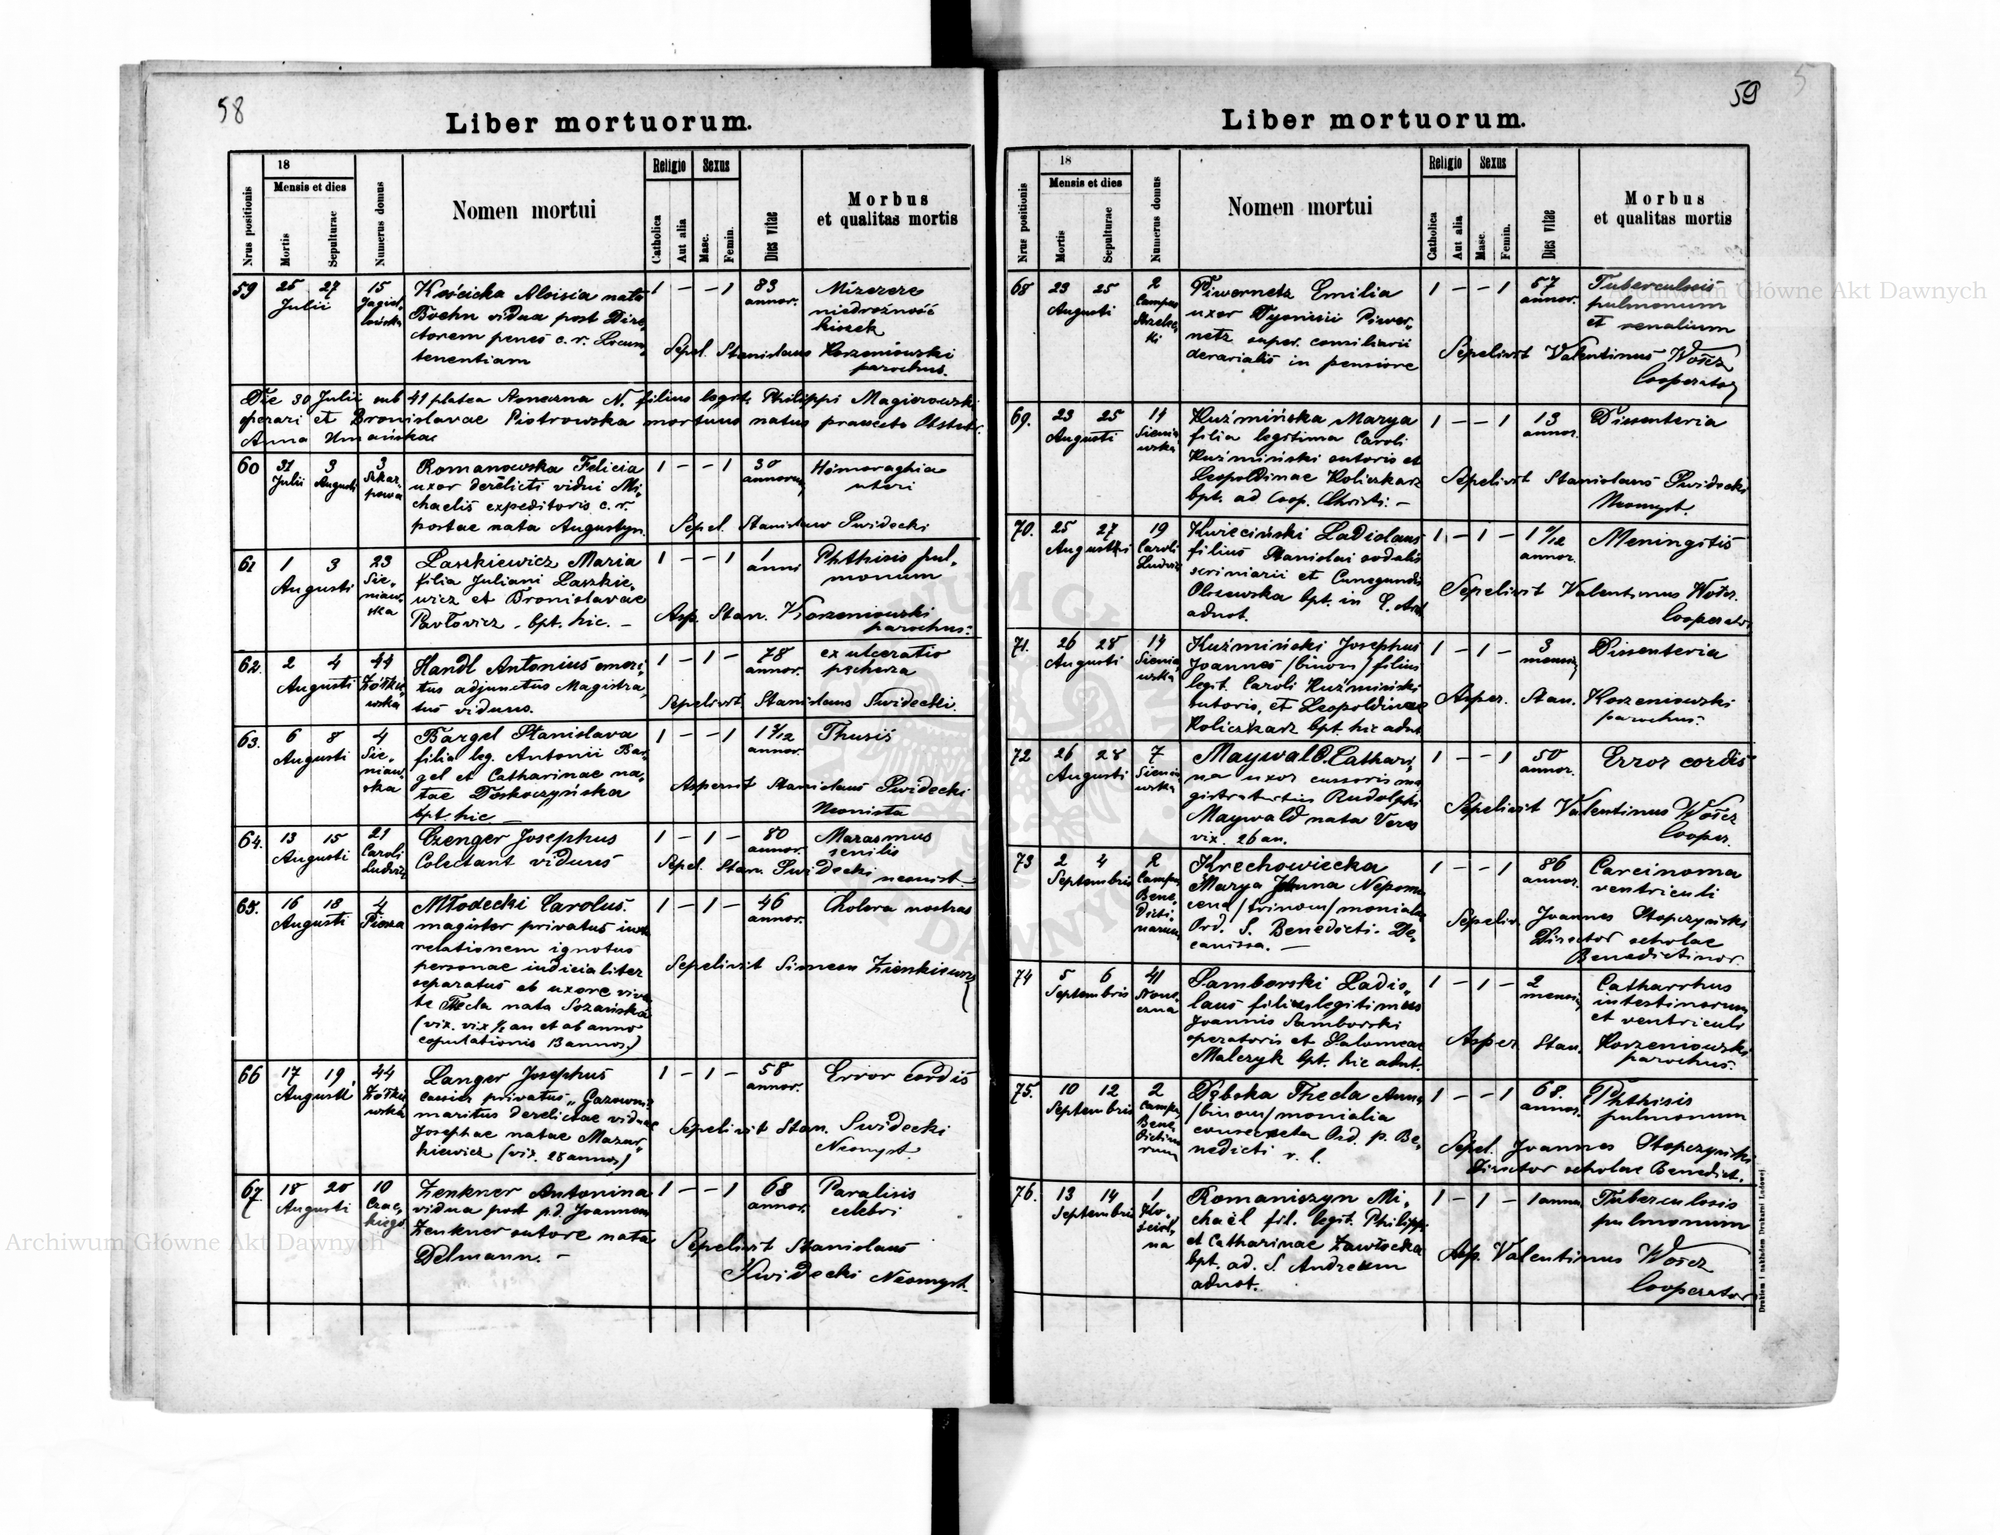 58
Liber mortuorum.
Nrus positionis
18
Mensis et dies
Mortis
Sepulturae
Numerus domus
Nomen mortui
Religio
Catholica
Aut alia
Sexus
Masc.
Femin.
Dies vitae
Morbus
et qualitas mortis
59 25 27 15 Kościcka Aloisia nata 1 – – 1 83 Mizerere
Julii Jagiel- Boehn vidua post Dire- annor. niedrożność
lońska ctorem penes c. r. Locum kiszek
tenentiam Sepel. Stanislaus Korzeniowski
parochus.
Die 30 Julii sub 41 platea N. filius legit. Philippi Magierowski
operari et Bronislavae Piotrowska mortuus natus praesente Obstetr.
Anna Umańska
60 31 3 3 Romanowska Felicia 1 – – 1 30 Hömoraghia
Julii Augusti Szkar- uxor derelicti vidui Mi- annorum uteri
powa chaelis expeditoris c. r.
postae nata Augustyn. Sepel. Stanislaw Swidecki
61 1 3 23 Laszkiewicz Maria 1 – – 1 1 Phthisis pul-
Augusti Sie- filia Juliani Laszkie- anni monum
niaw- wicz et Bronislavae
ska Pavłovicz. bpt. hic. – Asp. Stan. Korzeniowski
parochus.
62. 2 4 44 Handl Antonius emeri- 1 – 1 – 78 exulceratio
Augusti Żółkie- tus adjunctus Magistra- annor. pęcherza
wska tus viduus. Sepelivit Stanislaus Swidecki.
63. 6 8 4 Bargel Stanislava 1 – – 1 Thusis
Augusti Sie- filia leg. Antonii Bar- annor.
niaw- gel et Catharinae na-
ska tae Doskoczyńska Aspersit Stanislaus Swidecki
bpt. hic – Neomista
64. 13 15 21 Czenger Josephus 1 – 1 – 80 Marasmus
Augusti Caroli Colectant viduus annor. senilis
Ludvic Sepel. Stan. Swidecki neomist.
65. 16 18 4 Młodecki Carolus. 1 – 1 – 46 Cholera nostras
Augusti magister privatus iuxta annor.
relationem ignotus
personae iudicialiter Sepelivit Simeon Zienkiewicz
separatus ab uxore viven-
te Tecla nata Sozańska
(vix. vix ½ an et ab anno
copulationis 13 annos.)
66 17 19 44 Langer Josephus 1 – 1 – 58 Error cordis
Augusti Żółkie- privatus annor.
wska maritus derelictae viduae
Josephae natae Mazur- Sepelivit Stan. Swidecki
kiewicz (vix. 28 annos) Neomyst.
67 18 20 10 Zenkner Antonina 1 – – 1 68 Paralisis
Augusti Czac- vidua post p.d. Joannem annor. celebri
kiego Zenkner sutore nata Sepelivit Stanislaus
Delmann. – Swidecki Neomyst.
59
5
Liber mortuorum.
Nrus positionis
18
Mensis et dies
Mortis
Sepulturae
Numerus domus
Nomen mortui
Religio
Catholica
Aut alia
Sexus
Masc.
Femin.
Dies vitae
Morbus
et qualitas mortis
68 23 25 2 Piwernetz Emilia 1 – – 1 57 Tuberculosis
Augusti Campus uxor Dyonisii Piwer- annor. pulmonum
Strzelec- netz super. consiliarii et renalium
ki aerarialis in pensione Sepelivit Valentinus Wołcz
Cooperator
69. 23 25 14 Kuźmińska Marya 1 – – 1 13 Dissenteria
Augusti Sienia- filia legitima Caroli annor.
wska Kuźmiński sutoris et
Leopoldinae Koliczkarz Sepelivit Stanislaus Swidecki
bpt. ad Corp. Christi. – Neomyst.
70. 25 27 19 Kwieciński Ladislaus 1 – 1 – Meningitis
Augusti Caroli filius Stanislai sodalis annor.
Ludvic scriniarii et Cunegundis Sepelivit Valentinus Wołcz.
Olszewska bpt. in Cooperator
adnot.
71. 26 28 14 Kuźmiński Josephus 1 – 1 – 3 Dissenteria
Augusti Sienia- Joannes /binom/ filius mensis
wska legit. Caroli Kuźmiński Asper. Stan. Korzeniowski
sutoris, et Leopoldinae parochus.
Koliczkarz bpt. hic adnot.
72 26 28 7 Maywald Cathari- 1 – – 1 50 Error cordis
Augusti Sienia- na uxor cursoris ma- annor.
wska gistratus Rudolphi Sepelivit Valentinus Wołcz
Maywald nata Veres Cooper.
vix. 26 an.
73 2 4 2 Krechowiecka 1 – – 1 86 Carcinoma
Septembris Campus Marya Joanna Nepomu- annor. ventriculi
Bene- cena /trinom/ monialis Sepeliv. Joannes Stopczyński
dicti- Ord. S. Benedicti. De- Director scholae
narum canissa. – Benedictinar.
74 5 6 41 Samborski Ladis- 1 – 1 – 2 Catharrhus
Septembris laus filius legitimus mensis intestinorum
Joannis Samborski et ventriculi
operatoris et Salomeae Asper. Stan. Korzeniowski
Malczyk bpt. hic adnot. parochus.
75. 10 12 2 Dębska Thecla Anna 1 – – 1 68. Phthisis
Septembris Campus /binom/ monialis annor. pulmonum
Bene- consecreta Ord. p. Be- Sepel. Joannes Stopczyński
dictina- nedicti r. l. Director scholae Benedict.
rum
76. 13 14 1 Romaniszyn Mi- 1 – 1 – 1 annus Tuberculosis
Septembris chaël fil. legit. Philippi pulmonum
et Catharinae Zawłocka Asp. Valentinus Wołcz
bpt. ad. S. Andream Cooperator
adnot.
Drukiem i nakładem Drukarni Ludowej
Archiwum Główne Akt Dawnych
Archiwum Główne Akt Dawnych